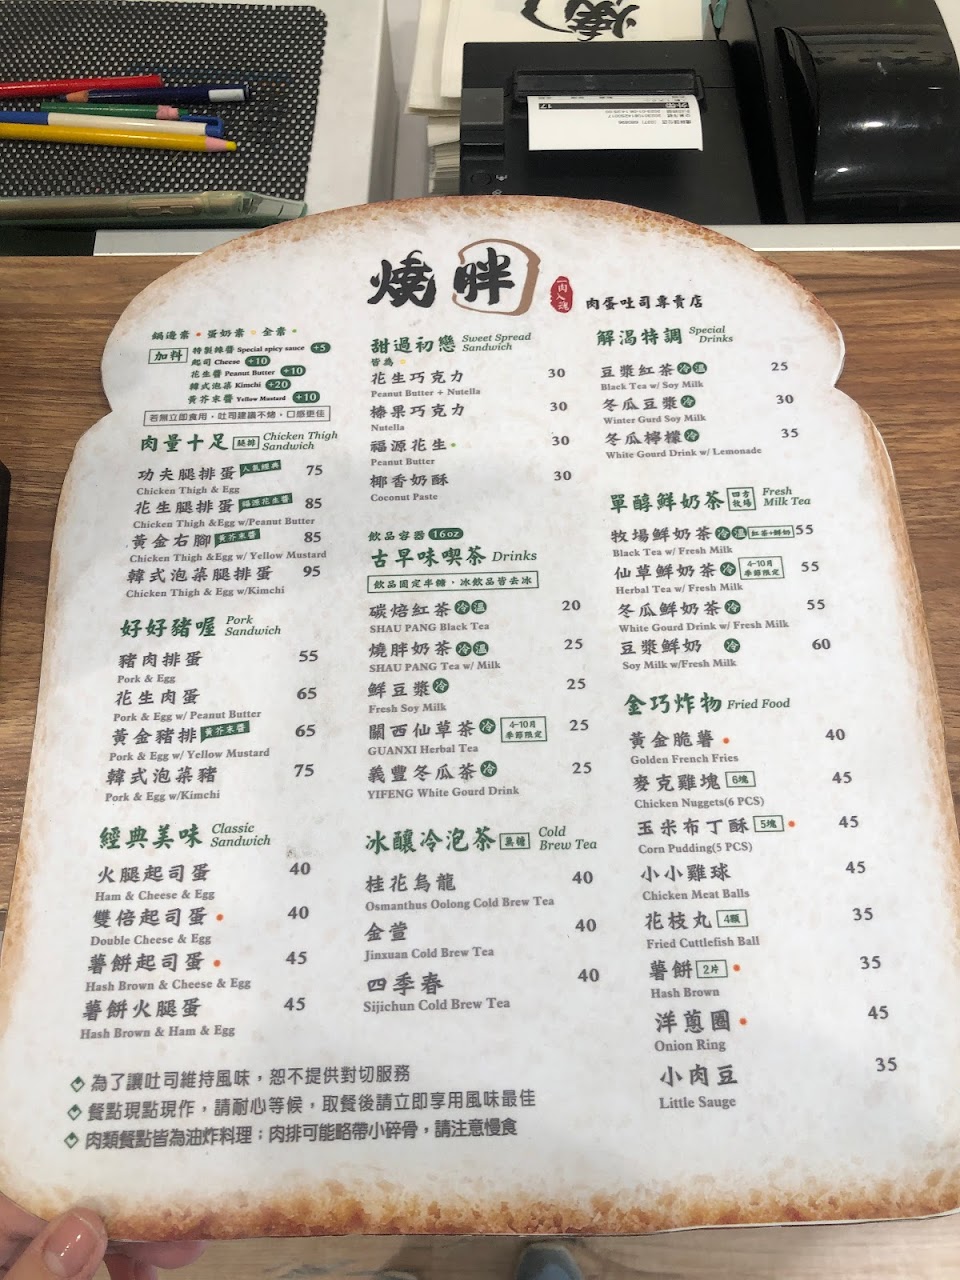 燒胖
一肉入魂
肉蛋吐司專賣店
鍋邊素 • 蛋奶素 • 全素 •
加料
特製辣醬 Special spicy sauce +5
起司 Cheese +10
花生醬 Peanut Butter +10
韓式泡菜 Kimchi +20
黃芥末醬 Yellow Mustard +10
若無立即食用，吐司建議不烤，口感更佳
肉量十足 腿排 Chicken Thigh Sandwich
功夫腿排蛋 人氣經典 75
Chicken Thigh & Egg
花生腿排蛋 福源花生醬 85
Chicken Thigh &Egg w/Peanut Butter
黃金右腳 黃芥末醬 85
Chicken Thigh &Egg w/ Yellow Mustard
韓式泡菜腿排蛋 95
Chicken Thigh & Egg w/Kimchi
好好豬喔 Pork Sandwich
豬肉排蛋 55
Pork & Egg
花生肉蛋 65
Pork & Egg w/ Peanut Butter
黃金豬排 黃芥末醬 65
Pork & Egg w/ Yellow Mustard
韓式泡菜豬 75
Pork & Egg w/Kimchi
經典美味 Classic Sandwich
火腿起司蛋 40
Ham & Cheese & Egg
雙倍起司蛋 • 40
Double Cheese & Egg
薯餅起司蛋 • 45
Hash Brown & Cheese & Egg
薯餅火腿蛋 45
Hash Brown & Ham & Egg
甜過初戀 Sweet Spread Sandwich
皆為 •
花生巧克力 30
Peanut Butter + Nutella
榛果巧克力 30
Nutella
福源花生 • 30
Peanut Butter
椰香奶酥 30
Coconut Paste
飲品容器 16oz
古早味喫茶 Drinks
飲品固定半糖，冰飲品皆去冰
碳焙紅茶 冷 溫 20
SHAU PANG Black Tea
燒胖奶茶 冷 溫 25
SHAU PANG Tea w/ Milk
鮮豆漿 冷 25
Fresh Soy Milk
關西仙草茶 冷 4-10月 季節限定 25
GUANXI Herbal Tea
義豐冬瓜茶 冷 25
YIFENG White Gourd Drink
冰釀冷泡茶 無糖 Cold Brew Tea
桂花烏龍 40
Osmanthus Oolong Cold Brew Tea
金萱 40
Jinxuan Cold Brew Tea
四季春 40
Sijichun Cold Brew Tea
解渴特調 Special Drinks
豆漿紅茶 冷 溫 25
Black Tea w/ Soy Milk
冬瓜豆漿 冷 30
Winter Gurd Soy Milk
冬瓜檸檬 冷 35
White Gourd Drink w/ Lemonade
單醇鮮奶茶 四方牧場 Fresh Milk Tea
牧場鮮奶茶 冷 溫 紅茶+鮮奶 55
Black Tea w/ Fresh Milk
仙草鮮奶茶 冷 4-10月 季節限定 55
Herbal Tea w/ Fresh Milk
冬瓜鮮奶茶 冷 55
White Gourd Drink w/ Fresh Milk
豆漿鮮奶 冷 60
Soy Milk w/Fresh Milk
金巧炸物 Fried Food
黃金脆薯 • 40
Golden French Fries
麥克雞塊 6塊 45
Chicken Nuggets(6 PCS)
玉米布丁酥 5塊 • 45
Corn Pudding(5 PCS)
小小雞球 45
Chicken Meat Balls
花枝丸 4顆 35
Fried Cuttlefish Ball
薯餅 2片 • 35
Hash Brown
洋蔥圈 • 45
Onion Ring
小肉豆 35
Little Sauge
為了讓吐司維持風味，恕不提供對切服務
餐點現點現作，請耐心等候，取餐後請立即享用風味最佳
肉類餐點皆為油炸料理；肉排可能略帶小碎骨，請注意慢食